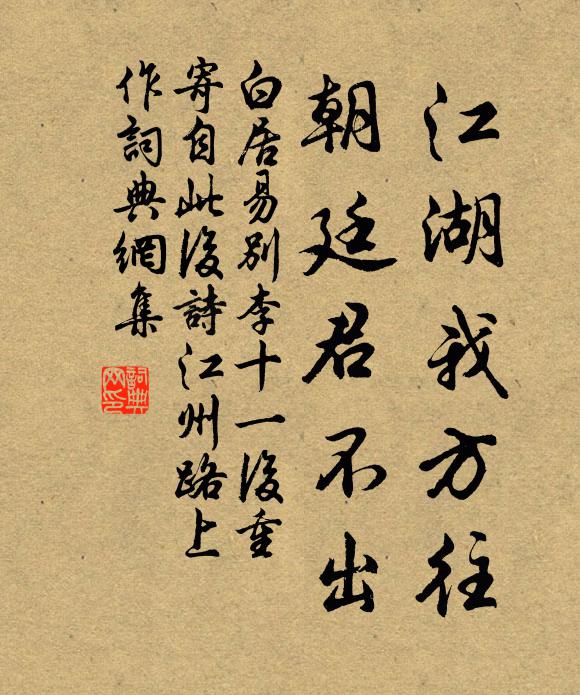 江湖我方往
朝廷君不出
白居易別李十一後重
寄自此後詩江州路上
作詞典網集
詞典
网印